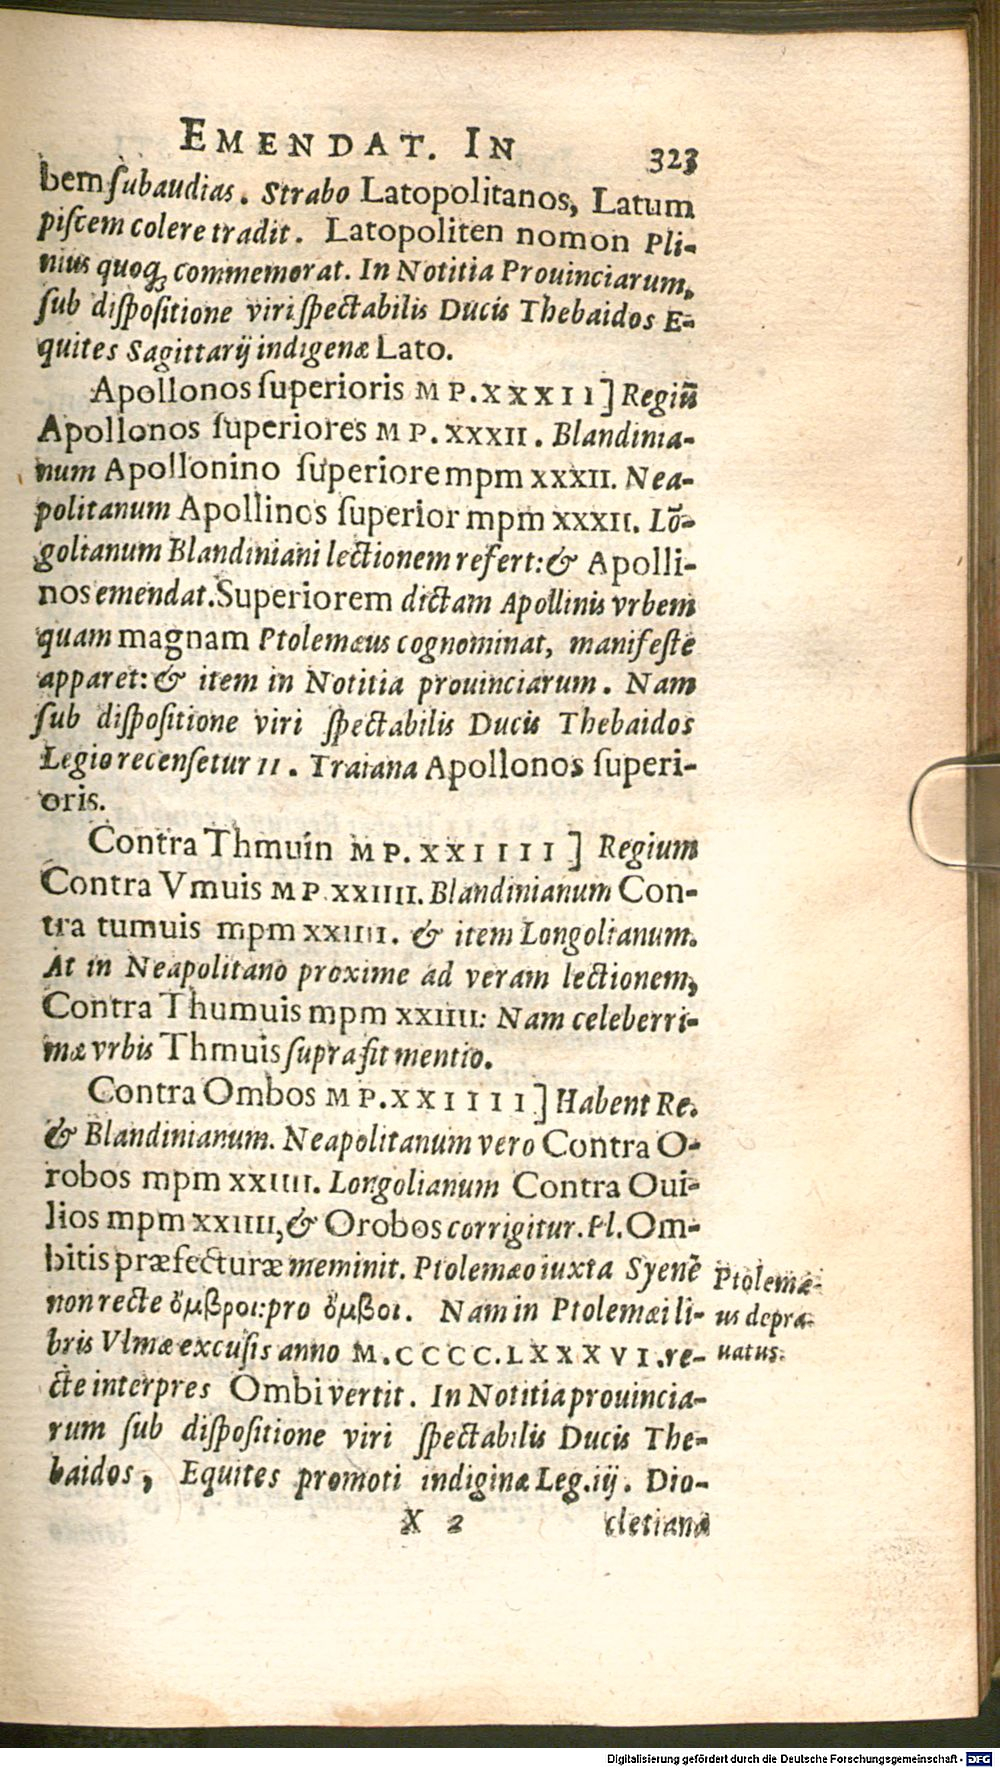 EMENDAT. IN 323
bem ſubaudias. Strabo Latopolitanos, Latum
piſcem colere tradit. Latopoliten nomon Pli-
nius quoq; commemorat. In Notitia Prouinciarum,
ſub diſpoſitione viri ſpectabilis Ducis Thebaidos E-
quites Sagittarij indigenæ Lato.
Apollonos ſuperioris MP.XXXII] Regiũ
Apollonos ſuperiores MP.XXXII. Blandinia-
num Apollonino ſuperiore mpm XXXII. Nea-
politanum Apollinos ſuperior mpm XXXII. Lõ-
golianum Blandiniani lectionem refert: & Apolli-
nos emendat. Superiorem dictam Apollinis vrbem
quam magnam Ptolemæus cognominat, manifeſte
apparet: & item in Notitia prouinciarum. Nam
ſub diſpoſitione viri ſpectabilis Ducis Thebaidos
Legio recenſetur II. Traiana Apollonos ſuperi-
oris.
Contra Thmuin MP.XXIIII] Regium
Contra Vmuis MP.XXIIII. Blandinianum Con-
tra tumuis mpm XXIIII. & item Longolianum.
At in Neapolitano proxime ad veram lectionem,
Contra Thumuis mpm XXIIII: Nam celeberri-
mæ vrbis Thmuis ſupra fit mentio.
Contra Ombos MP.XXIIII] Habent Re.
& Blandinianum. Neapolitanum vero Contra O-
robos mpm XXIIII. Longolianum Contra Oui-
lios mpm XXIIII, & Orobos corrigitur. Pl. Om-
bitis præfecturæ meminit. Ptolemæo iuxta Syenẽ
non recte ὄμβροι: pro ὄμβοι. Nam in Ptolemæi li-
bris Vlmæ excuſis anno M.CCCC.LXXXVI. re-
cte interpres Ombi vertit. In Notitia prouincia-
rum ſub diſpoſitione viri ſpectabilis Ducis The-
baidos, Equites promoti indiginæ Leg. iij. Dio-
X 2 cletiana
Ptolemæ-
us depra-
uatus.
Digitalisierung gefördert durch die Deutsche Forschungsgemeinschaft - DFG